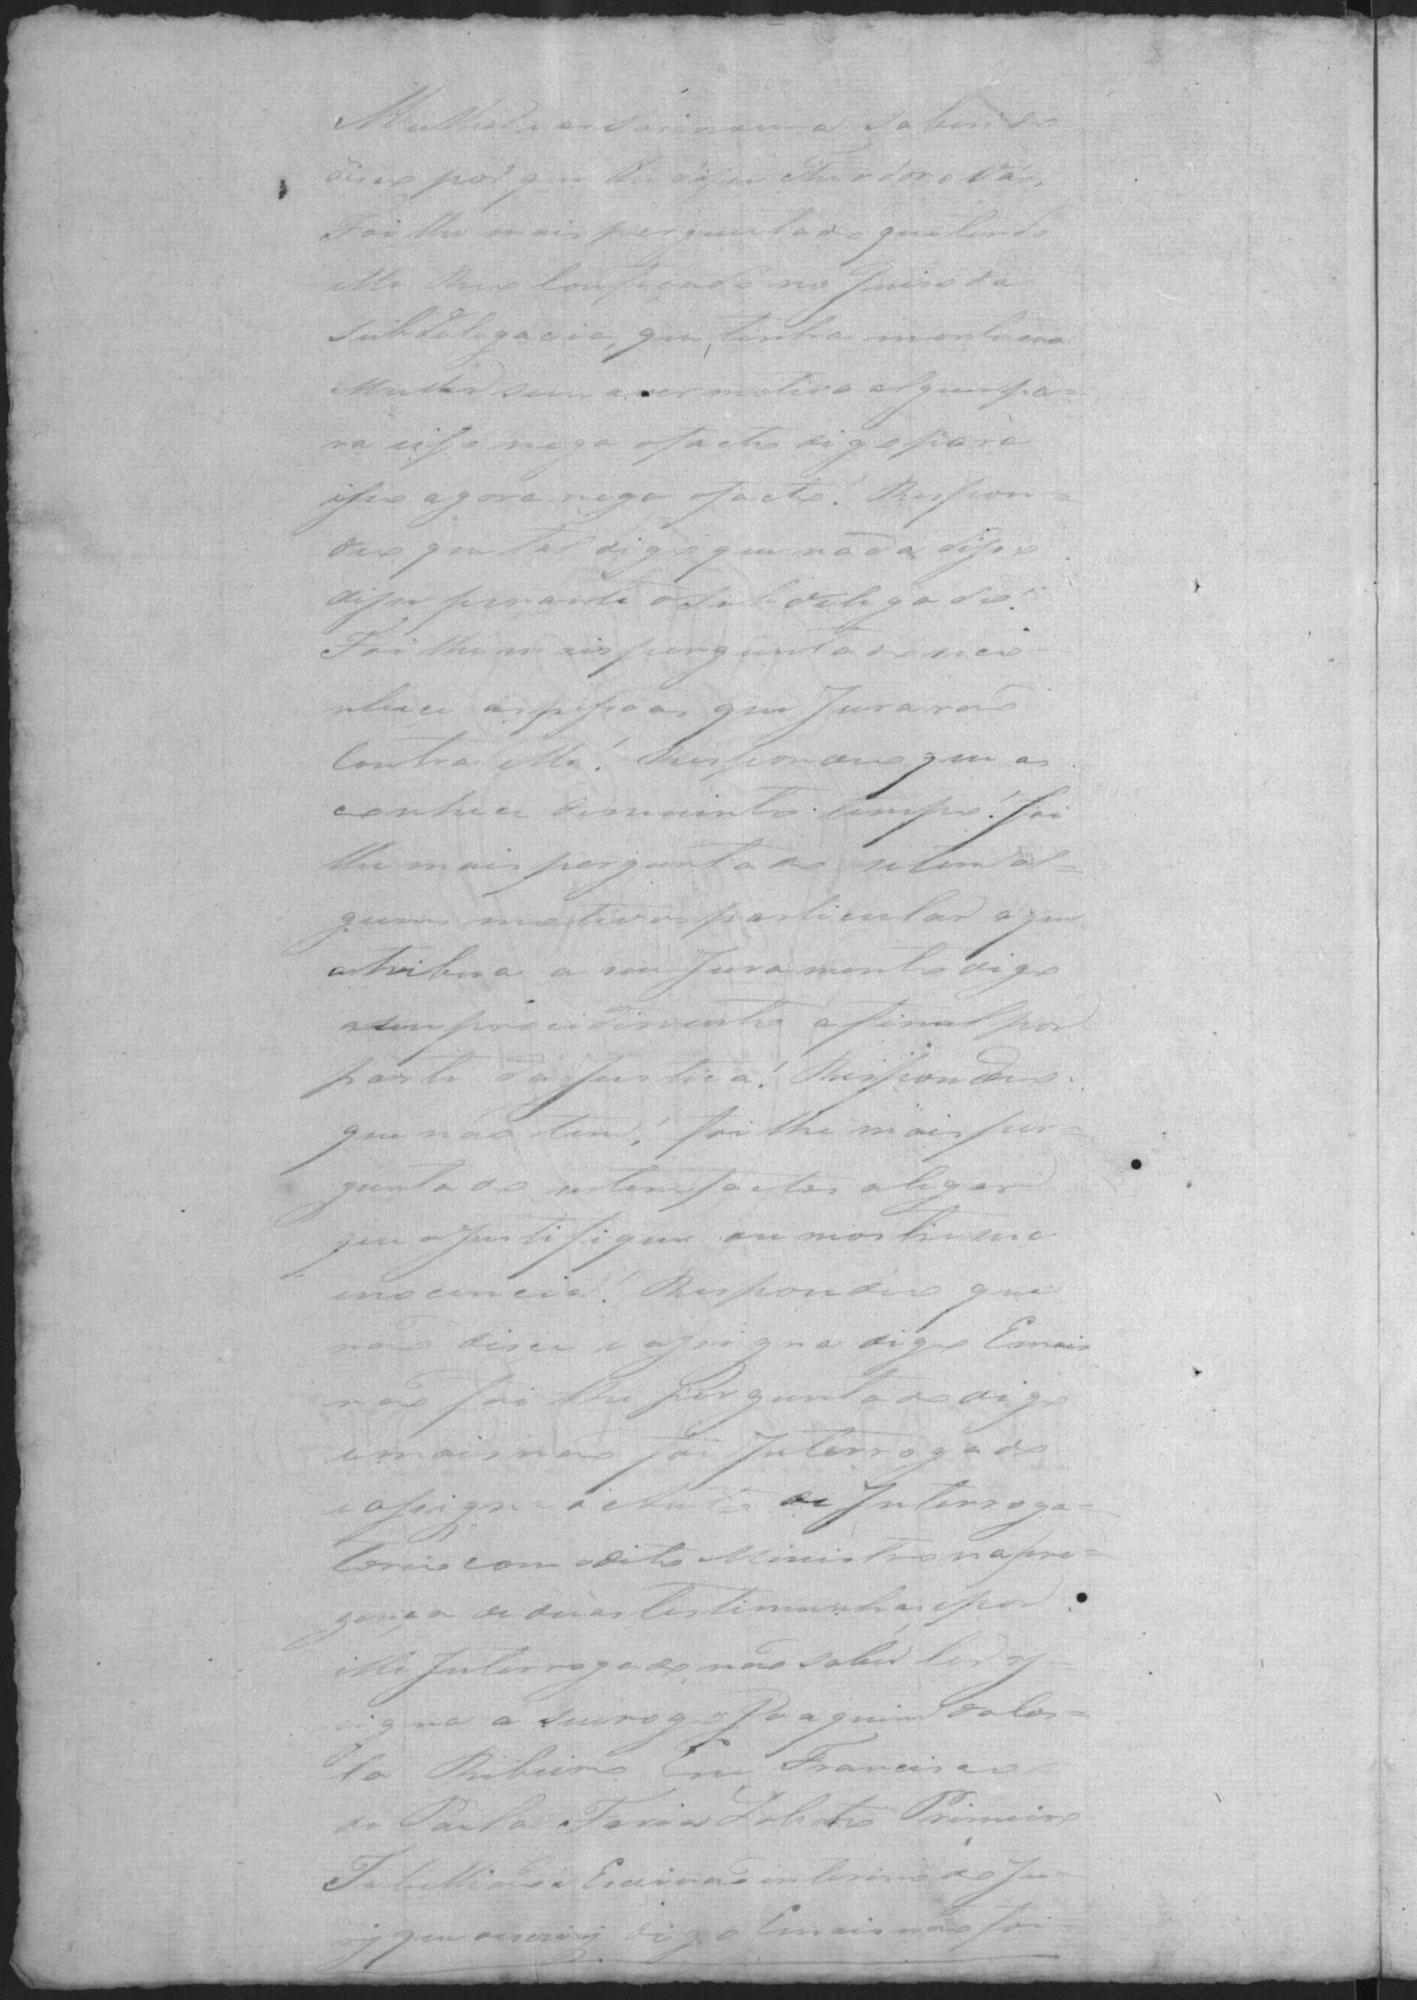 Mulher e a sabendo
disse por que lhe disse Theodoro Vás,
Foi lhe mais perguntado que tendo
elle Reu confeçado no Juiso da
Subdelegacia, que tinha morto sua
Mulher sem aver motivo algum pa-
ra isso nega o facto digo para
isso agora nega o facto! Respon-
deo que tal digo que nada disse
disse perante o Subdelegado!
Foi lhe mais perguntado se co-
nhece as pessoas que Jurarão
Contra elle! Respondeo que as
conhece de muinto tempo! foi
lhe mais perguntado se tem al-
gum motivo particular a que
atribua a seu Juramento digo
a seu procidimento afinal por
parte da Justiça! Respondeo
que não tem! foi lhe mais per-
guntado se tem factos alegar
que o Justifique ou mostre sua
inocencia! Respondeo que
não disse e assigna digo E mais
não foi lhe perguntado digo
e mais não foi Interrogado
e assigna este Auto de Interroga-
torio com o dito Ministro na pre-
zença de duas testimunhas e por
elle Interrogado não saber ler as-
signa a seu rogo Joaquim da Cos-
ta Ribeiro Eu Francisco
de Paula Faria Lobato Primeiro
Tabellião e Escrivão interino do Ju-
ry que escrevy digo E mais não foi